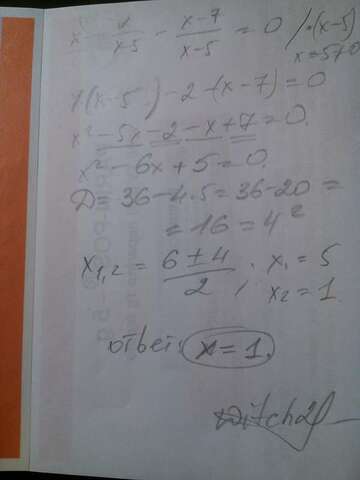 x - 2/(x-5) - (x-7)/(x-5) = 0 / ·(x-5)
x = 5 ≠ 0
x(x-5) - 2 - (x-7) = 0
x² - 5x - 2 - x + 7 = 0.
x² - 6x + 5 = 0.
D = 36 - 4·5 = 36 - 20 =
= 16 = 4²
x₁,₂ = (6 ± 4)/2 , x₁ = 5
x₂ = 1.
ответ: x = 1.
witch2